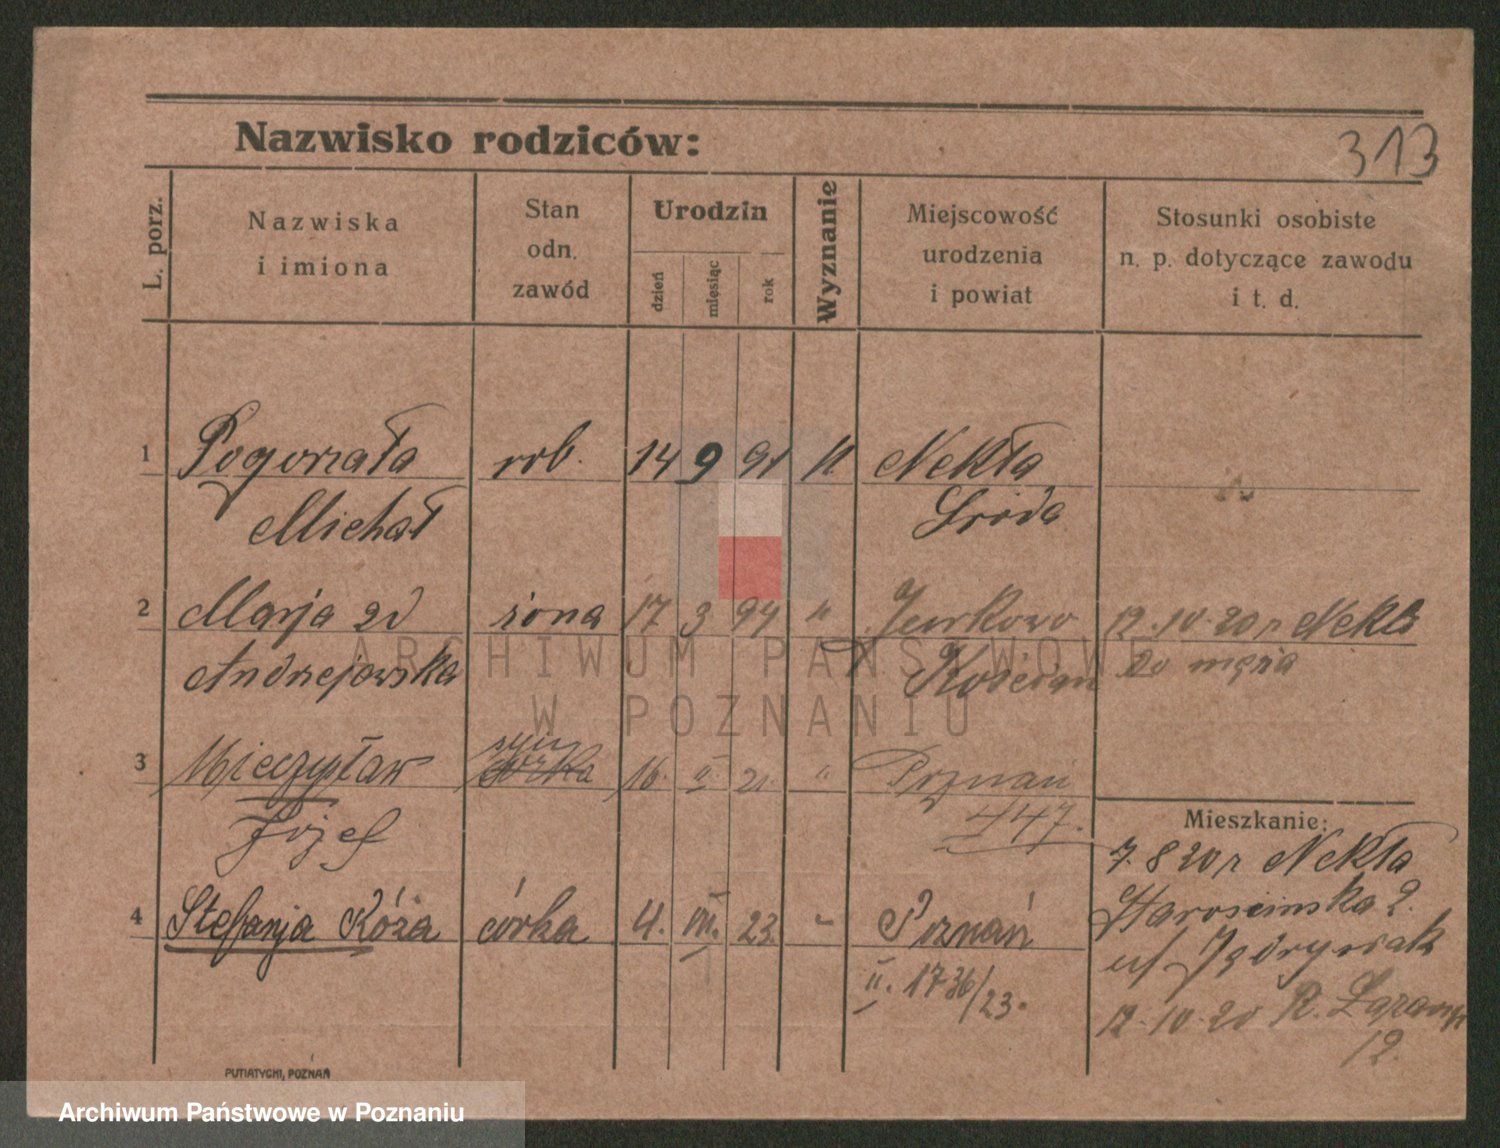 Nazwisko rodziców:
313
L. porz.
Nazwiska
i imiona
Stan
odn.
zawód
Urodzin
dzień
miesiąc
rok
Wyznanie
Miejscowość
urodzenia
i powiat
Stosunki osobiste
n. p. dotyczące zawodu
i t. d.
1 Pogorzała rob. 14 9 91 k Nekła
Michał Środa
2 Marja żona 17 3 94 " Jurkowo 12.10.20 r Nekla
Andrzejewska Kościan do męża
3 Mieczysław syn córka 16. II. 21. " Poznań
Józef 447.
Mieszkanie:
7.8 20 r Nekła
4 Stefanja Róża córka 4. VII. 23. " Poznań
II. 1736/23.
2.
12.10.20
12.
PUTIATYCKI, POZNAŃ
ARCHIWUM PAŃSTWOWE
W POZNANIU
Archiwum Państwowe w Poznaniu